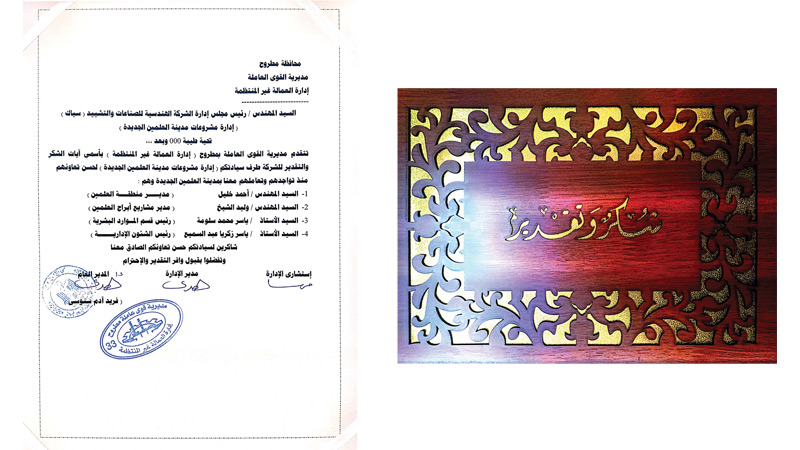 محافظة مطروح
مديرية القوى العاملة
إدارة العمالة غير المنتظمة
السيد المهندس / رئيس مجلس إدارة الشركة الهندسية للصناعات والتشييد ( سياك )
( إدارة مشروعات مدينة العلمين الجديدة )
تحية طيبة 000 وبعد ...
تتقدم مديرية القوى العاملة بمطروح ( إدارة العمالة غير المنتظمة ) بأسمى آيات الشكر
والتقدير للشركة طرف سيادتكم ( إدارة مشروعات مدينة العلمين الجديدة ) لحسن تعاونهم
منذ تواجدهم وتعاملهم معنا بمدينة العلمين الجديدة وهم :
1- السيد المهندس / أحمد خليل ( مديــر منطقــة العلمين )
2- السيد المهندس / وليد الشيخ ( مدير مشاريع أبراج العلمين )
3- السيد الأستاذ / ياسر محمد سلومة ( رئيس قسم المـوارد البشرية )
4- السيد الأستاذ / ياسر زكريا عبد السميع ( رئيس الشئون الإداريــــة )
شاكرين لسيادتكم حسن تعاونكم الصادق معنا
وتفضلوا بقبول وافر التقدير والإحترام
إستشارى الإدارة مدير الإدارة المدير العام
مديرية قوى عاملة مطروح
إدارة العمالة غير المنتظمة
33
شكر وتقدير